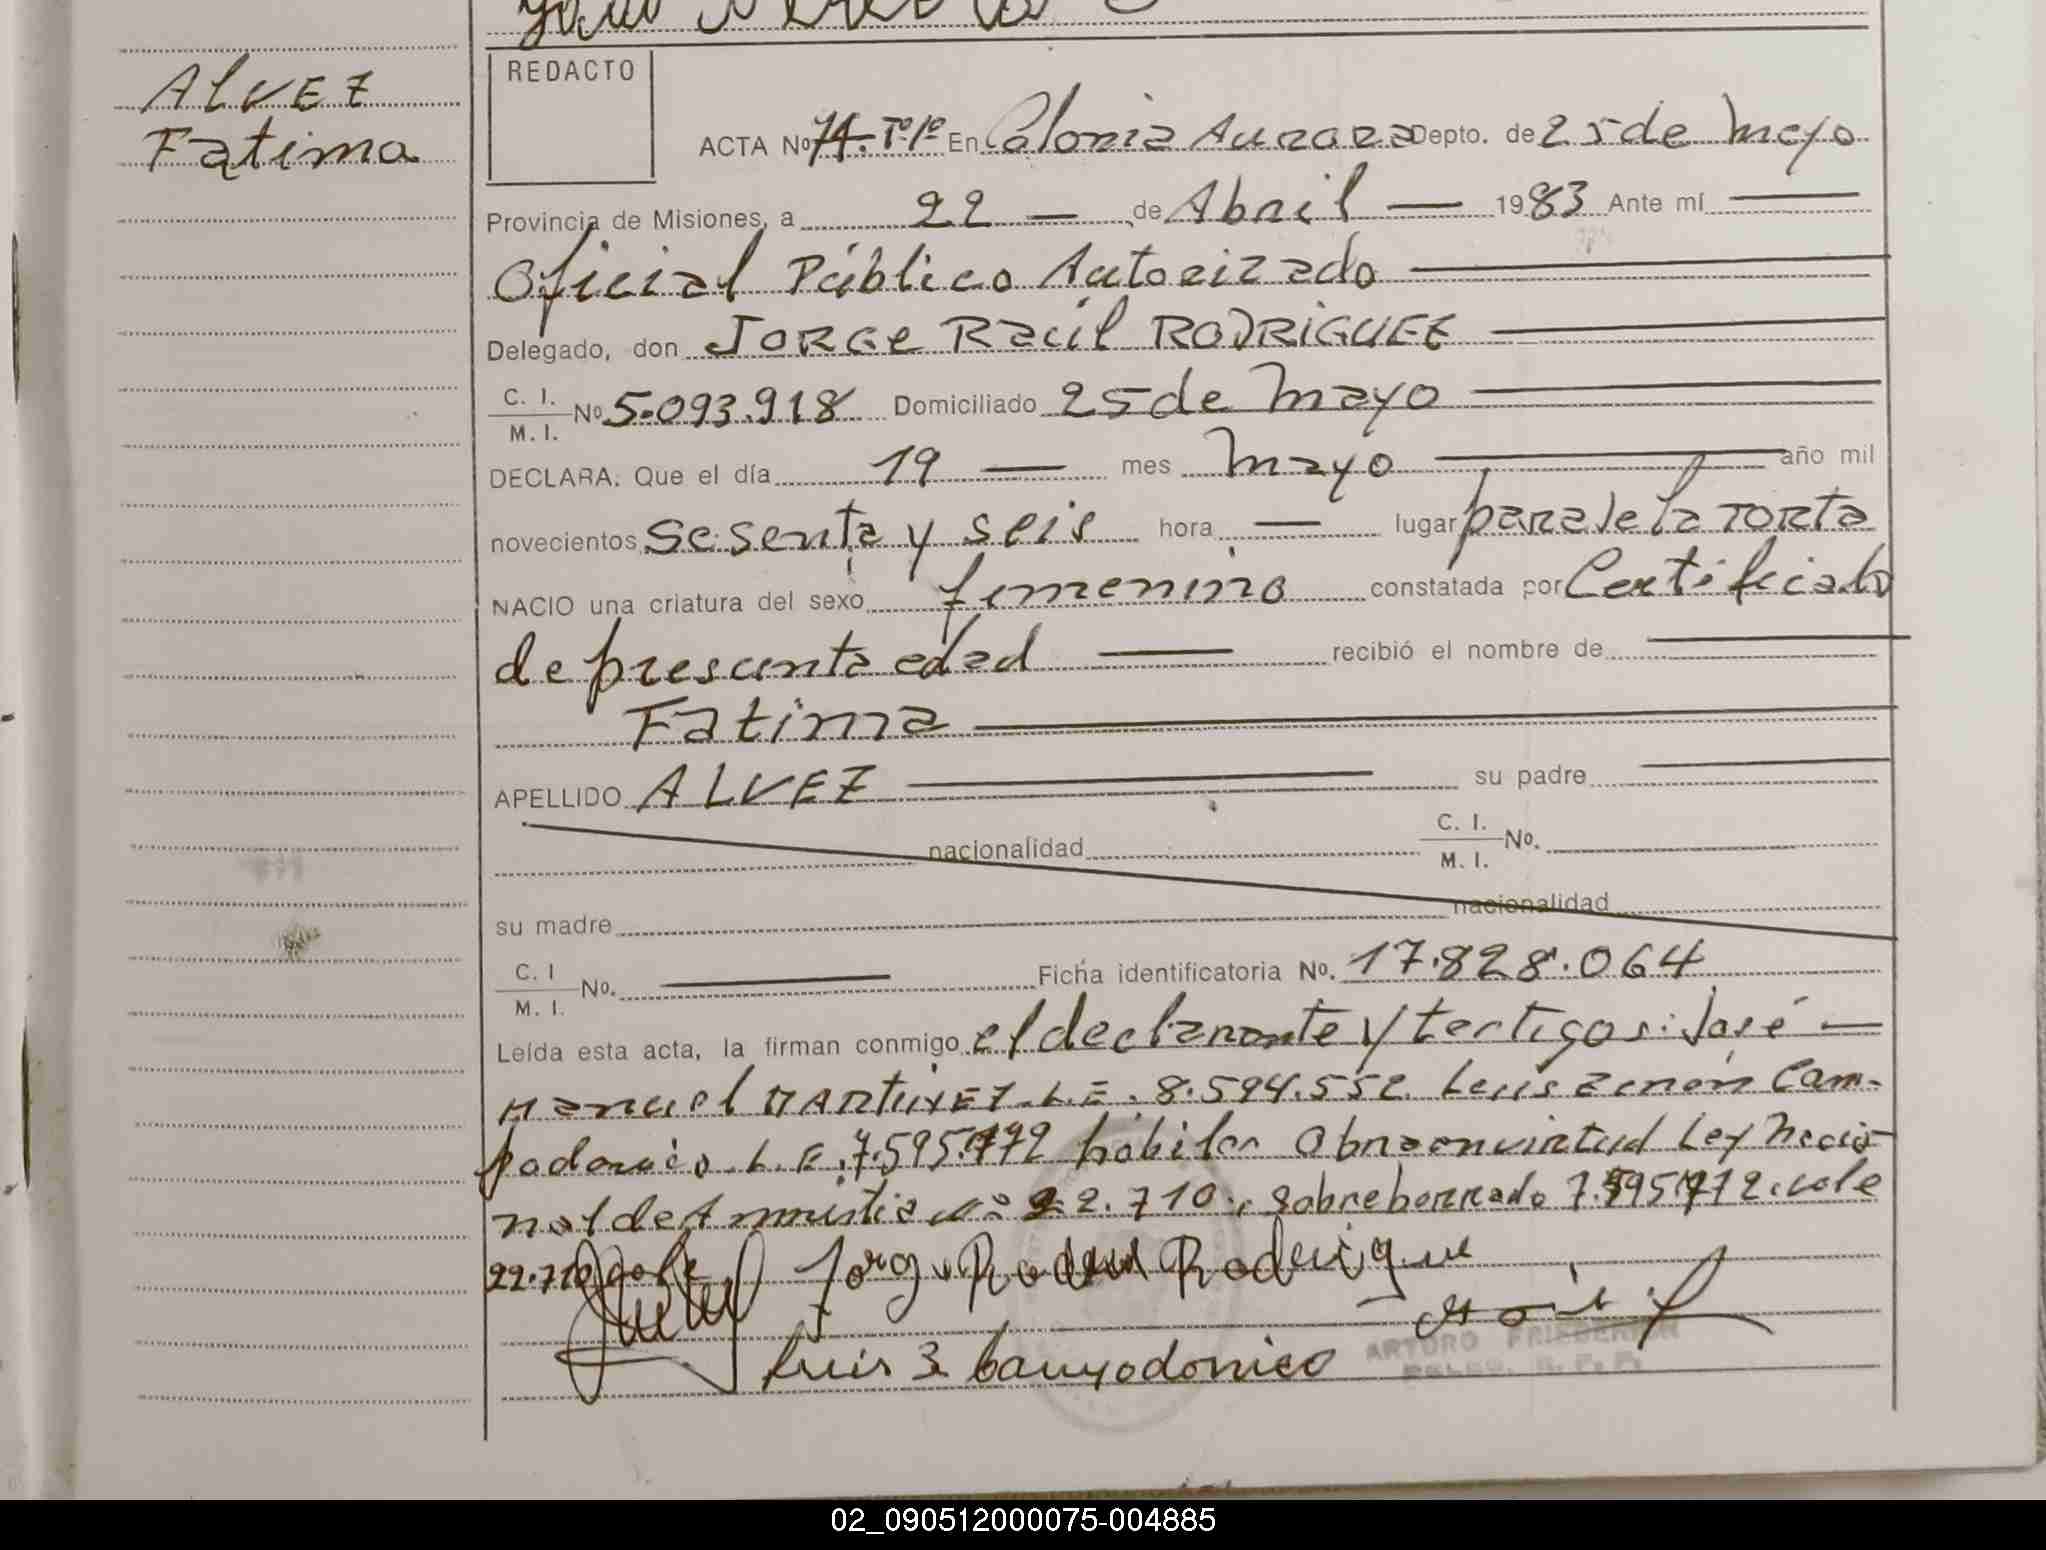 ALVEZ
Fatima
REDACTO
ACTA Nº 74. Tº 1º En Colonia Aurora Depto. de 25 de Mayo
Provincia de Misiones, a 22 — de Abril — 1983 Ante mí —
Oficial Público Autorizado —
Delegado, don JORGE Raúl RODRIGUEZ —
C. I.
M. I. Nº 5.093.918 Domiciliado 25 de Mayo —
DECLARA: Que el día 19 — mes Mayo — año mil
novecientos Sesenta y seis hora — lugar paraje la Torta
NACIO una criatura del sexo femenino constatada por Certificado
de presunta edad — recibió el nombre de —
Fatima —
APELLIDO ALVEZ — su padre —
nacionalidad C. I.
M. I. Nº.
su madre nacionalidad
C. I
M. I. Nº. — Ficha identificatoria Nº. 17.828.064
Leída esta acta, la firman conmigo el declarante y testigos: José —
Manuel MARTINEZ L.E. 8.594.552 Luis Zenón Cam-
podonico L.E. 7.595.772 hábiles Obra en virtud Ley Nacio-
nal de Amnistia Nº 22.710., Sobreborrado 7.595.772. vale
22.710 vale
Luis Z Campodonico
ARTURO
02_090512000075-004885